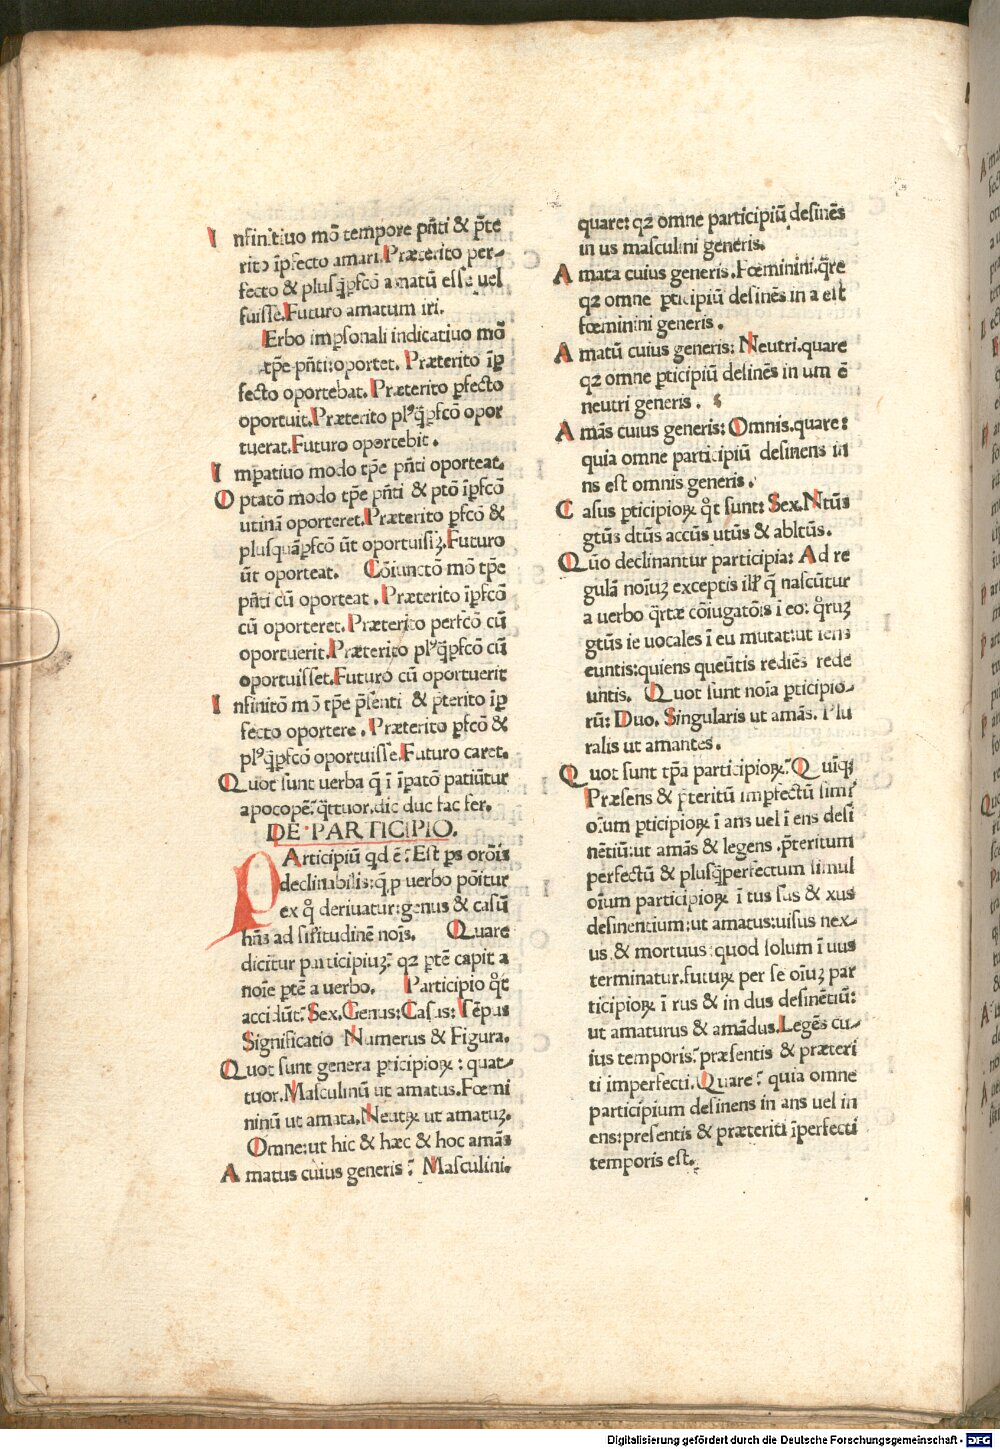 Infinitiuo mō tempore pñti & p̃te
rito īpfecto amari. Præterito per-
fecto & plusq̃pfcō amatū esse uel
fuisse. Futuro amatum iri.
Erbo impsonali indicatiuo mō
tp̄e pñti: oportet. Præterito īp
fecto oportebat. Præterito pfecto
oportuit. Præterito plꝰq̃pfcō opor
tuerat. Futuro oportebit.
Impatiuo modo tp̄e pñti oporteat.
Optatō modo tp̄e pñti & ptō īpfcō
utinā oporteret. Præterito pfcō &
plusquāpfcō ūt oportuisꝫ. Futuro
ūt oporteat. Cōiunctō mō tp̄e
pñti cū oporteat. Præterito īpfcō
cū oporteret. Præterito perfcō cū
oportuerit. Præterito plꝰq̃pfcō cū
oportuisset. Futuro cū oportuerit
Infinitō mō tp̄e p̄senti & p̄terito īp
fecto oportere. Præterito pfcō &
plꝰq̃pfcō oportuisse. Futuro caret.
Quot sunt uerba q̄ ī īpatō patiūtur
apocopē? q̄ttuor. dic duc fac fer.
DE PARTICIPIO.
PArticipiū qd ē? Est ps orōis
declinabilis: q̄ p uerbo pōitur
ex q̊ deriuatur: genus & casū
hñs ad siłitudinē noīs. Quare
dicitur participiuꝫ? qꝛ ptē capit a
noīe ptē a uerbo. Participio q̊t
accidūt? Sex. Genus: Casus: Tēpus
Significatio Numerus & Figura.
Quot sunt genera pticipioꝝ: quat-
tuor. Masculinū ut amatus. Fœmi
ninū ut amata. Neutꝝ ut amatuꝫ.
Omne: ut hic & hæc & hoc amās
Amatus cuius generis? Masculini.
quare: qꝛ omne participiū desinēs
in us masculini generis.
Amata cuius generis. Fœminini. q̄re
qꝛ omne pticipiū desinēs in a est
fœminini generis.
Amatū cuius generis: Neutri. quare
qꝛ omne pticipiū desinēs in um ē
neutri generis.
Amās cuius generis: Omnis. quare:
quia omne participiū desinens in
ns est omnis generis.
Casus pticipioꝝ q̊t sunt: Sex. Ntūs
gtūs dtūs accūs utūs & abltūs.
Quō declinantur participia: Ad re
gulā noīuꝫ exceptis illꝭ q̄ nascūtur
a uerbo q̄rtæ cōiugatōis ī eo: q̊ruꝫ
gtūs ie uocales ī eu mutat: ut iens
euntis: quiens queūtis rediēs rede
untis. Quot sunt noīa pticipio-
rū: Duo. Singularis ut amās. Plu
ralis ut amantes.
Quot sunt tp̄a participioꝝ? Quīqꝫ
Præsens & p̄teritū imp̄fectū simł
oīum pticipioꝝ ī ans uel ī ens desī
nētiū: ut amās & legens. p̄teritum
perfectū & plusq̃perfectum simul
oīum participioꝝ ī tus sus & xus
desinentium: ut amatus: uisus nex-
us & mortuus: quod solum ī uus
terminatur. futuꝝ per se oīuꝫ par
ticipioꝝ ī rus & in dus desinētiū:
ut amaturus & amādus. Legēs cu-
ius temporis? præsentis & præteri
ti imperfecti. Quare? quia omne
participium desinens in ans uel in
ens: presentis & præteriti īperfecti
temporis est.
Digitalisierung gefördert durch die Deutsche Forschungsgemeinschaft - DFG